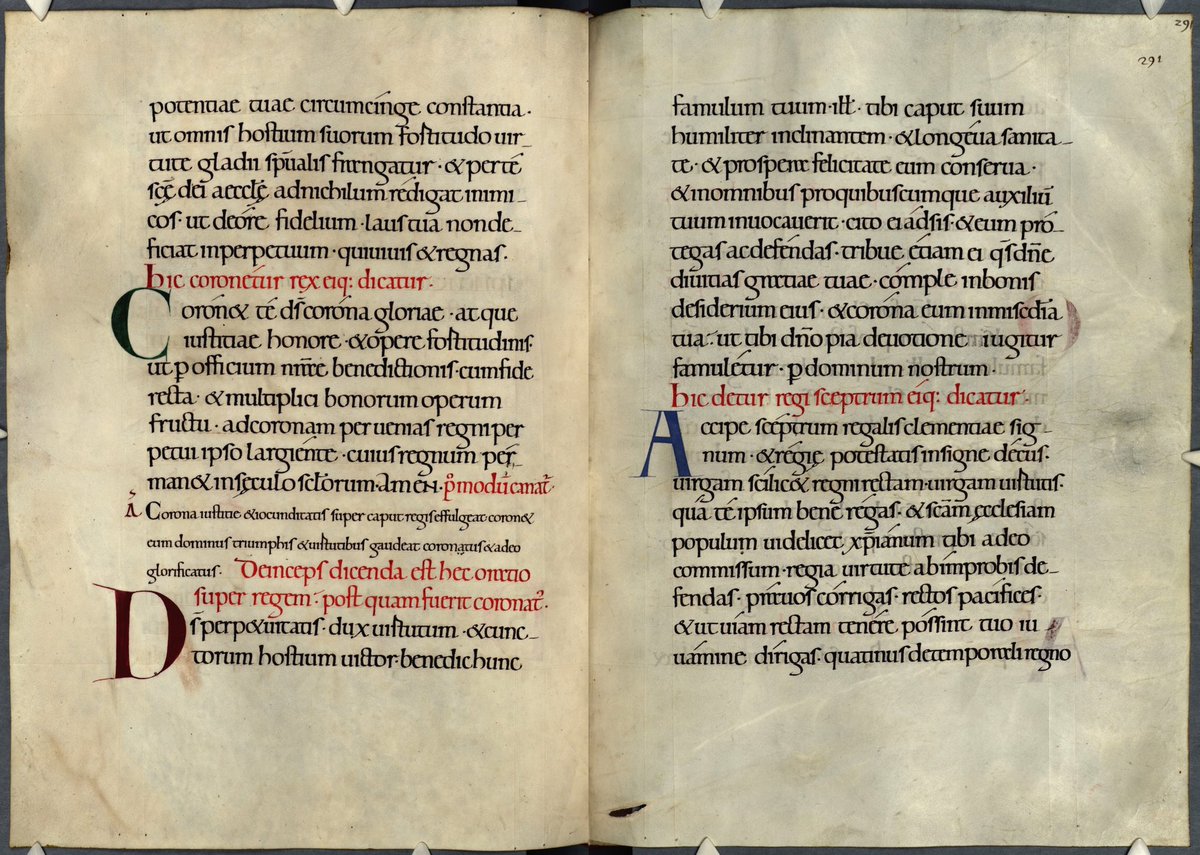 potentiae tuae circumcinge constantia·
ut omnis hostium suorum fortitudo uir-
tute gladii sp̅ualis frengatur· & per te
scę̅ dei aecclę̅ adnichilum redigat inimi-
cos· ut deore fidelium· laus tua non de-
ficiat inperpetuum· qui uiuis & regnas·
hic coronetur rex eiq; dicatur·
Coron& te ds̅ corona gloriae· atque
iustitiae honore· & opere fortitudinis·
ut p officium nr̅e benedictionis· cum fide
recta· & multiplici bonorum operum
fructu· adcoronam peruenias regni per
petui ipso largiente· cuius regnum per-
man& insęculo sclorum· AMEN· p̅ modu̅ canat̅·
A̅ Corona iustitie & iocunditatis super caput regis effulgeat coron&
eum dominus triumphis & uirtutibus gaudeat coronatus & a deo
glorificatus· Deinceps dicenda est hec oratio
super regem· postquam fuerit coronat'·
Ds̅ perp&uitatis· dux uirtutum· & cunc-
torum hostium uictor· benedic hunc
29
291
famulum tuum· ill̅· tibi caput suum
humiliter inclinantem· & longeua sanita-
te· & prospera felicitate eum conserua·
& inomnibus proquibuscumque auxiliu̅
tuum inuocauerit· cito ei adsis· & eum pro-
tegas ac defendas· tribue etiam ei qs̅ dn̅e
diuitias gratiae tuae· comple inbonis
desiderium eius· & corona eum inmisc̅dia
tua· ut tibi dn̅o pia deuotione iugitur
famuletur· p dominum nostrum·
hic detur regi sceptrum eiq; dicatur·
Accipe sceptrum regalis clementiae sig-
num· & regię potestatis insigne decus·
uirgam scilic& regni rectam· uirgam uirtutis·
qua te ipsum bene regas· & sc̅am ęcclesiam
populum uidelicet xp̅ianum tibi adeo
commissum· regia uirtute ab improbis de-
fendas· prauos corrigas· rectos pacifices·
& ut uiam rectam tenere possint tuo iu-
uamine dirigas· quatinus detemporeli regno